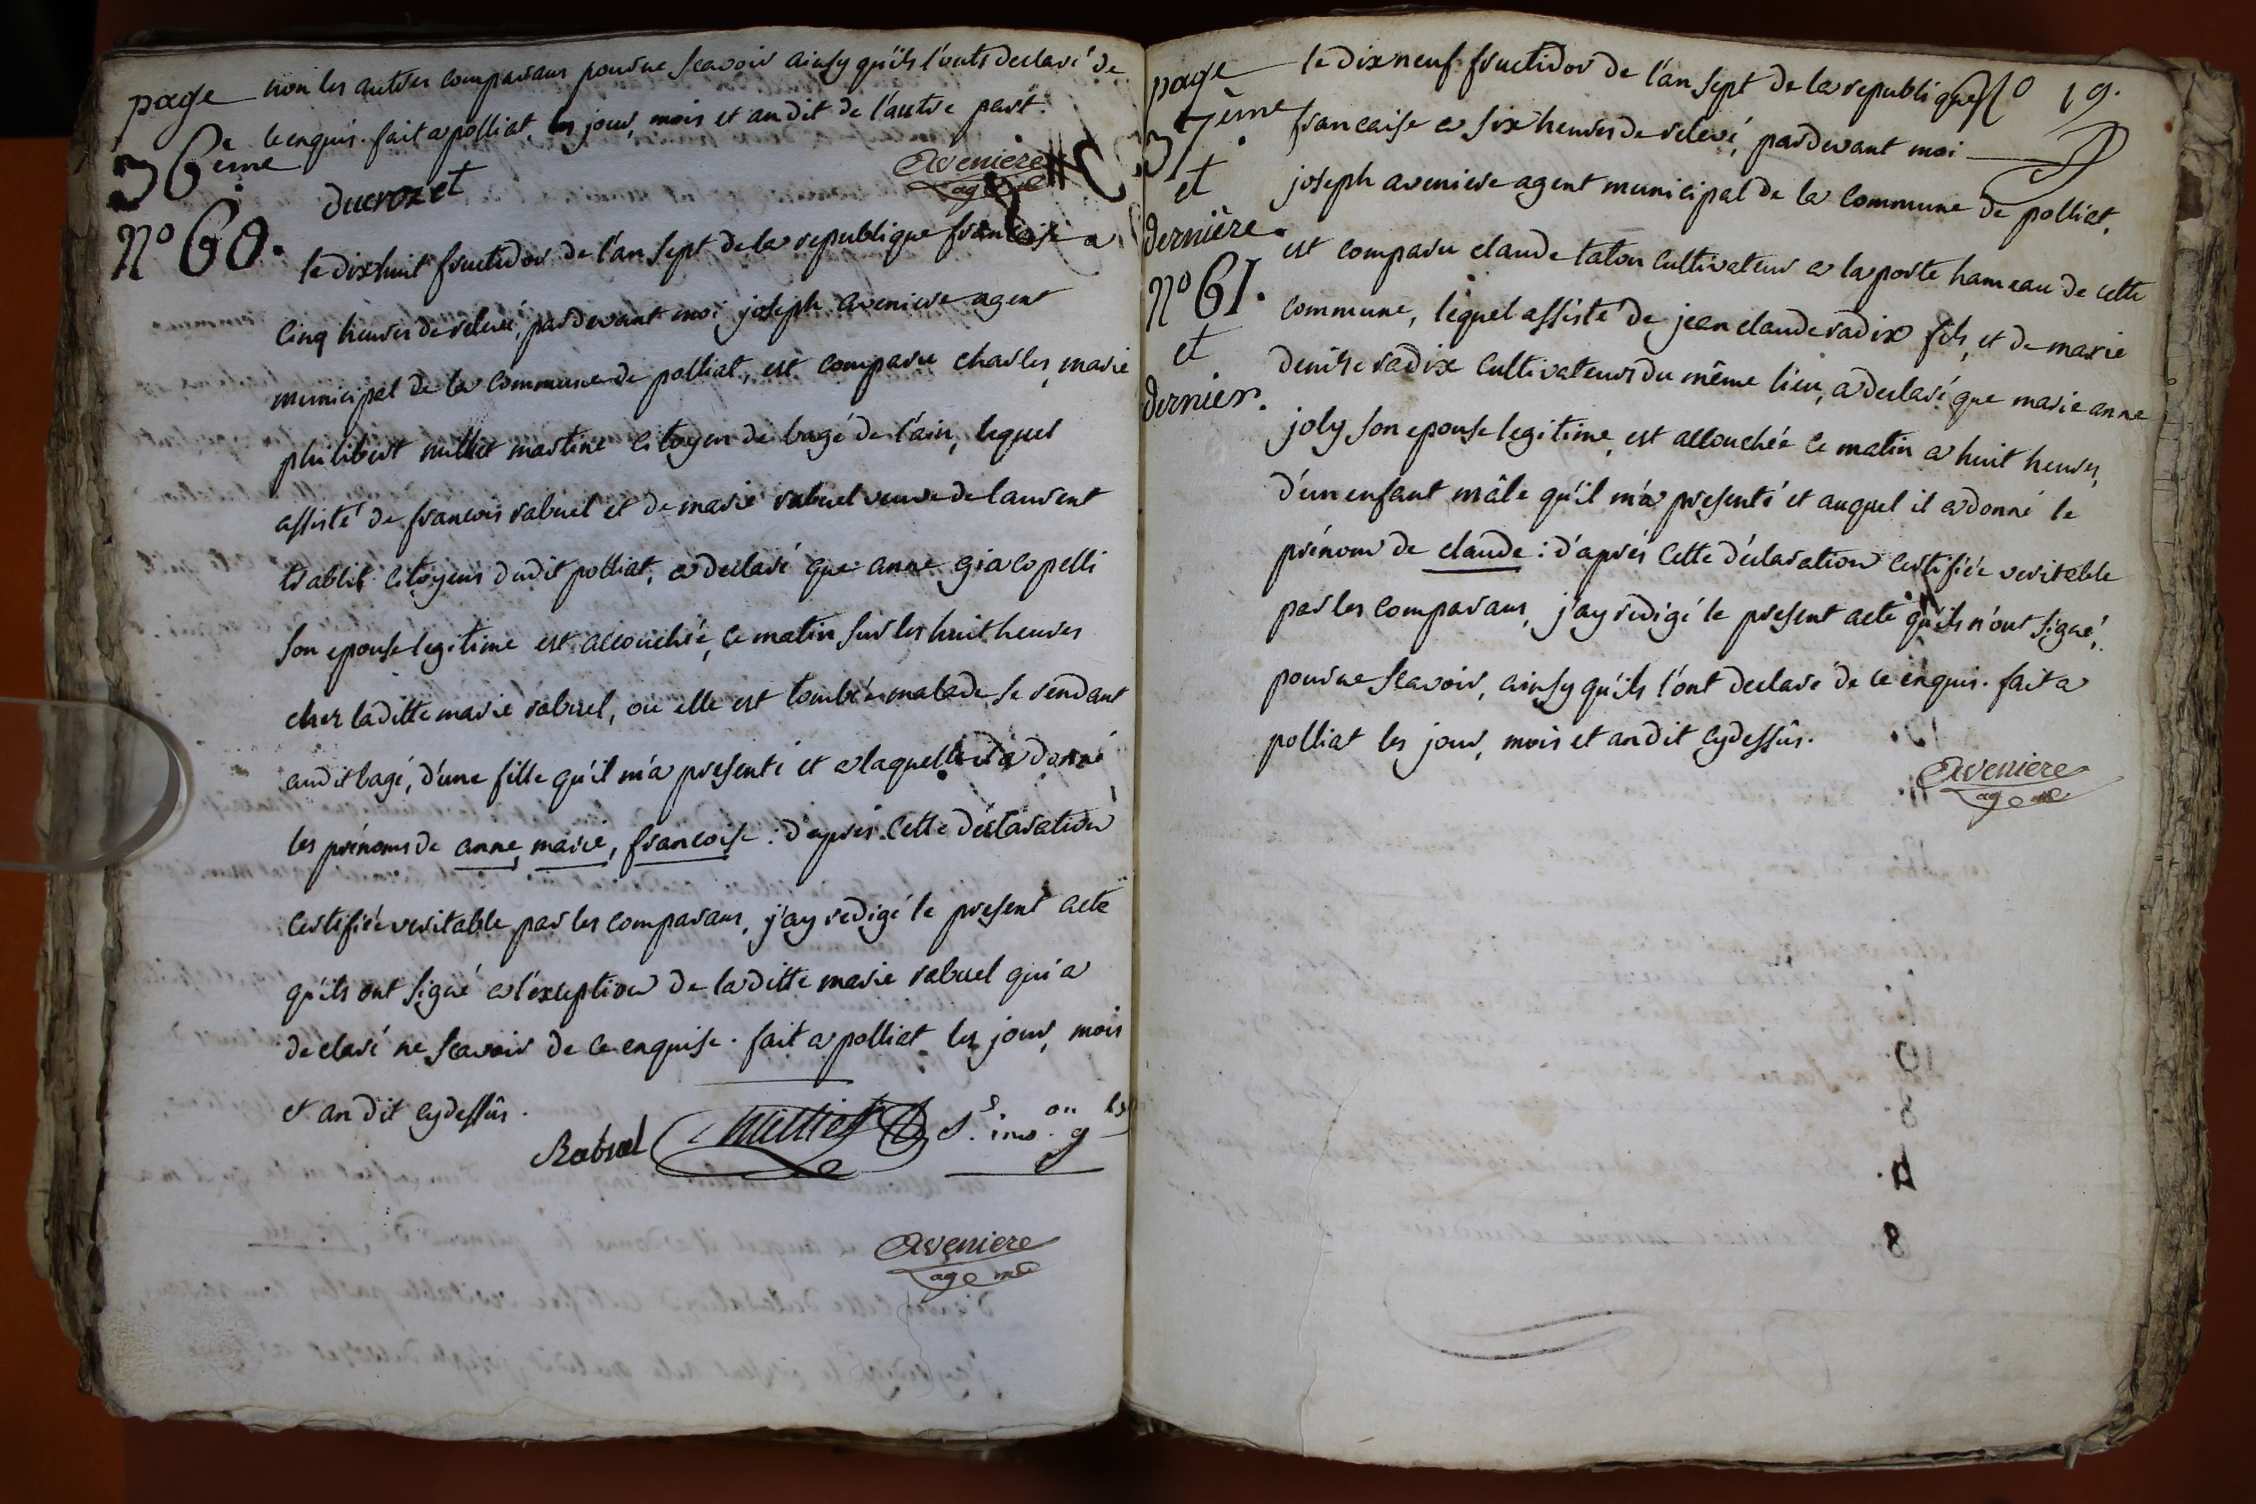 page
36ème
non les autres comparans pour ne scavoir ainsy qu'ils l'onts declaré de
ce enquis. fait a polliat, les jour, mois et an dit de l'autre part.
ducrozet
avenière
ag
N° 60.
le dix huit fructidor de l'an sept de la republique francaise a
cinq heures de relevé, pardevant moi joseph aveniere agent
municipal de la commune de polliat, est comparu charles, marie
philibert milliet martine citoyen de bagé de l'ain, lequel
assisté de francois rabuel et de marie rabuel veuve de laurent
trablit citoyens dudit polliat, a declaré que anne giacopelli
son epouse legitime est accouchée, ce matin sur les huit heures
chez laditte marie rabuel, ou elle est tombée malade se rendant
audit bagé, d'une fille qu'il m'a presenté et a laquelle il a donné
les prénoms de anne, marie, francoise : d'après cette déclaration
certifiée veritable par les comparans, j'ay redigé le present acte
qu'ils ont signé a l'exception de laditte marie rabuel qui a
declaré ne scavoir de ce enquise. fait a polliat les jour, mois
et an dit cydessûs.
Rabuel milliet
aveniere
ag mal
page
37ème
et
dernière.
N° 61.
et
dernier.
fo 19.
le dix neuf fructidor de l'an sept de la republique
francaise a six heures de relevé, pardevant moi
joseph aveniere agent municipal de la commune de polliat,
est comparu claude taton cultivateur a la poste hameau de cette
commune, lequel assisté de jean claude radix fils, et de marie
denise radix cultivateurs du même lieu, a declaré que marie anne
joly son epouse legitime, est accouchée ce matin a huit heures,
d'un enfant mâle qu'il m'a presenté et auquel il a donné le
prénom de claude : d'après cette déclaration certifiée veritable
par les comparans, j'ay redigé le present acte qu'ils n'ont signé,
pour ne scavoir, ainsy qu'ils l'ont declaré de ce enquis. fait a
polliat les jour, mois et an dit cydessûs.
aveniere
ag mal